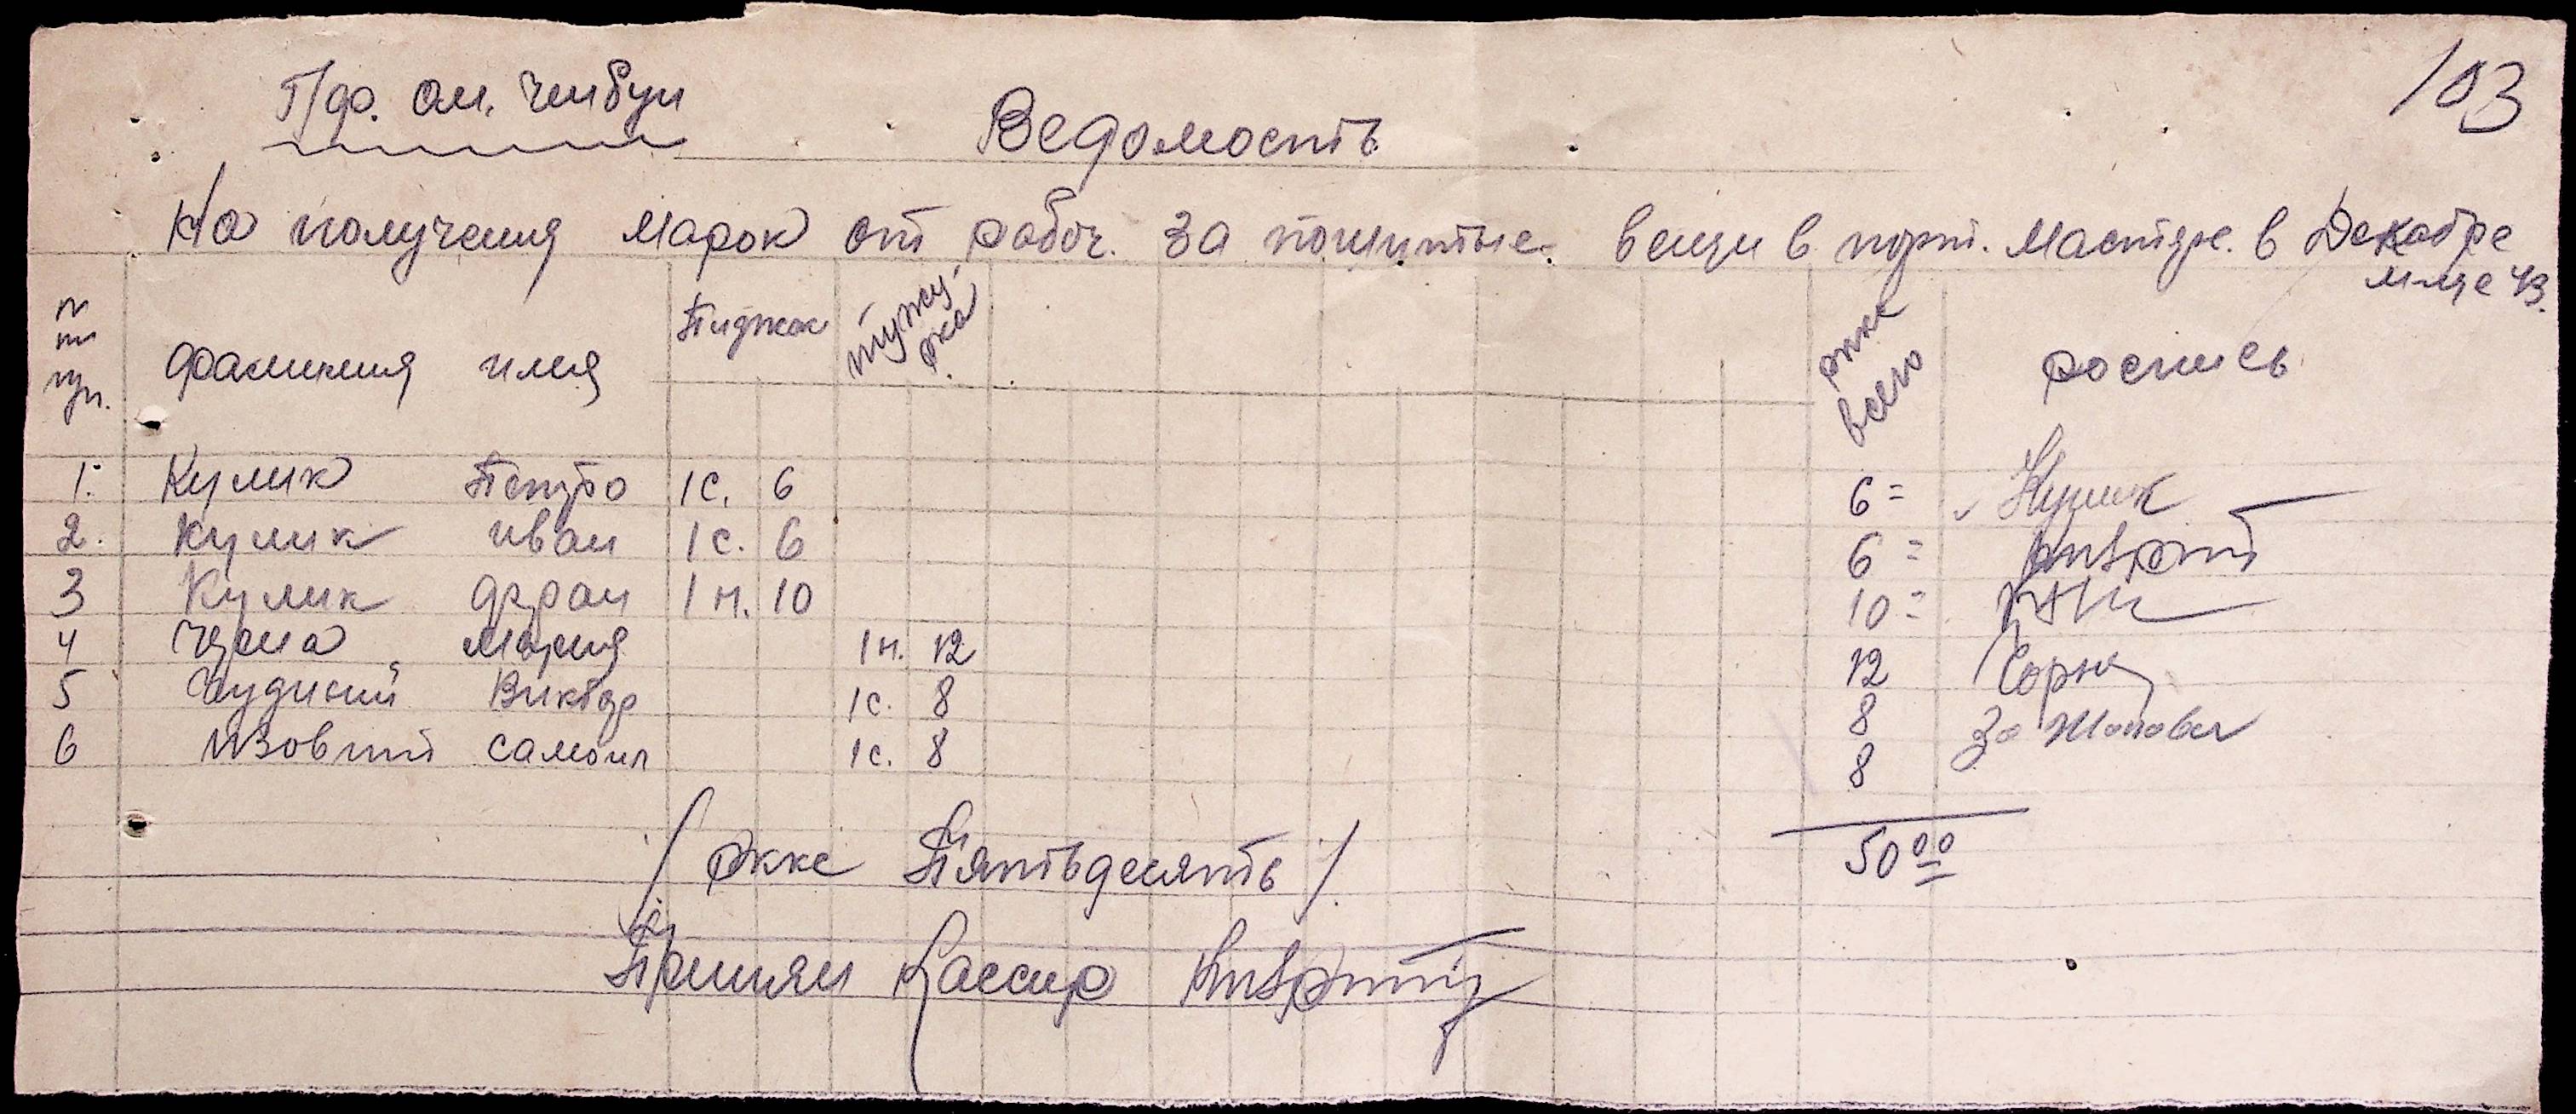 103
Ведомость
На получения марок от рабоч. за пошитые вещи в порт. мастер. в Декабре
м-це 43.
N фамилия имя Пиджак тужурка ркке всего роспись
1. Кулик Петро 1с. 6 6= Кулик
2. Кулик иван 1с. 6 6=
3 Кулик фран 1н. 10 10=
4 Мария 1н. 12 12
5 Виктор 1с. 8 8 За
6 самоил 1с. 8 8
50 00
/ ркке Пятьдесять /
Принял Кассир